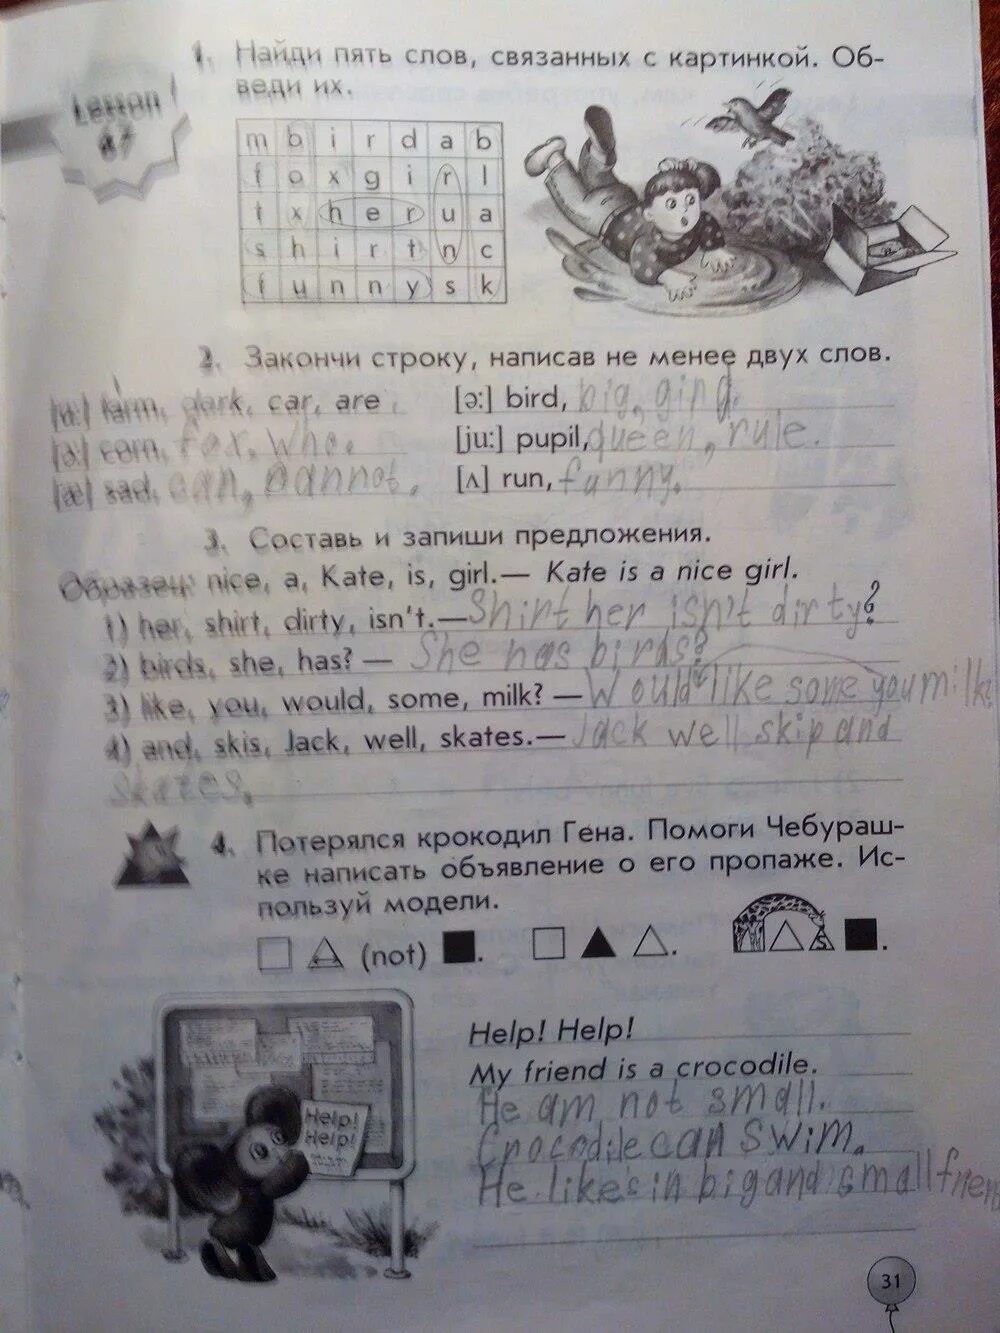 Lesson 47
1. Найди пять слов, связанных с картинкой. Об-
веди их.
m b i r d a b
f o x g i r l
t x h e r u a
s h i r t n c
f u n n y s k
2. Закончи строку, написав не менее двух слов.
[ɑ:] farm, dark, car, are
[ə:] bird, big, ging.
[ɔ:] corn, for, who.
[ju:] pupil, queen, rule.
[æ] sad, can, cannot,
[ʌ] run, funny.
3. Составь и запиши предложения.
Образец: nice, a, Kate, is, girl.— Kate is a nice girl.
1) her, shirt, dirty, isn't.— Shirt her isn't dirty?
2) birds, she, has? — She has birds?
3) like, you, would, some, milk? — Would like some you milk
4) and, skis, Jack, well, skates.— Jack well skip and
skates.
4. Потерялся крокодил Гена. Помоги Чебураш-
ке написать объявление о его пропаже. Ис-
пользуй модели.
(not) . . S .
Help!
Help!
Help! Help!
My friend is a crocodile.
He am not small.
Crocodile can swim.
He likes in big and small frien
31